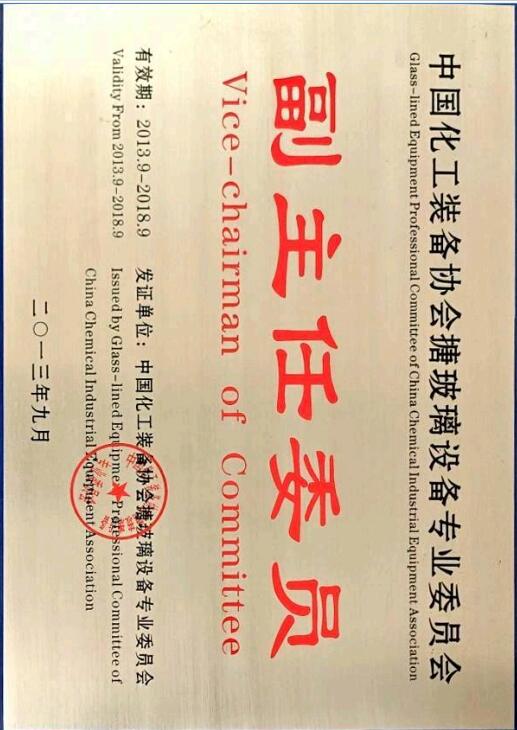 中国化工装备协会搪玻璃设备专业委员会
Glass-lined Equipment Professional Committee of China Chemical Industrial Equipment Association
副主任委员
Vice-chairman of Committee
有效期：2013.9-2018.9
Validity From 2013.9-2018.9
发证单位：中国化工装备协会搪玻璃设备专业委员会
Issued by Glass-lined Equipment Professional Committee of
China Chemical Industrial Equipment Association
二〇一三年九月